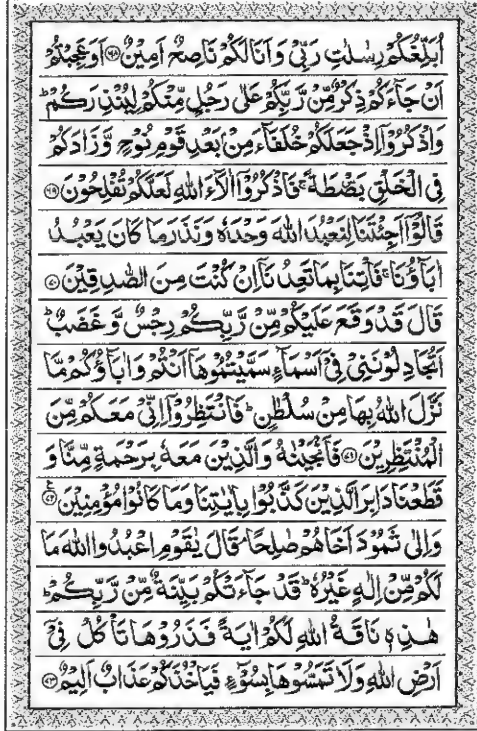 اُبَلِّغُكُمْ رِسٰلٰتِ رَبِّیْ وَ اَنَا لَكُمْ نَاصِحٌ اَمِیْنٌ ﴿۶۸﴾ اَوَ عَجِبْتُمْ
اَنْ جَآءَكُمْ ذِكْرٌ مِّنْ رَّبِّكُمْ عَلٰی رَجُلٍ مِّنْكُمْ لِیُنْذِرَكُمْ ؕ
وَ اذْكُرُوْۤا اِذْ جَعَلَكُمْ خُلَفَآءَ مِنْۢ بَعْدِ قَوْمِ نُوْحٍ وَّ زَادَكُمْ
فِی الْخَلْقِ بَصْۜطَةً ۚ فَاذْكُرُوْۤا اٰلَآءَ اللّٰهِ لَعَلَّكُمْ تُفْلِحُوْنَ ﴿۶۹﴾
قَالُوْۤا اَجِئْتَنَا لِنَعْبُدَ اللّٰهَ وَحْدَهٗ وَ نَذَرَ مَا كَانَ یَعْبُدُ
اٰبَآؤُنَا ۚ فَاْتِنَا بِمَا تَعِدُنَاۤ اِنْ كُنْتَ مِنَ الصّٰدِقِیْنَ ﴿۷۰﴾
قَالَ قَدْ وَقَعَ عَلَیْكُمْ مِّنْ رَّبِّكُمْ رِجْسٌ وَّ غَضَبٌ ؕ
اَتُجَادِلُوْنَنِیْ فِیْۤ اَسْمَآءٍ سَمَّیْتُمُوْهَاۤ اَنْتُمْ وَ اٰبَآؤُكُمْ مَّا
نَزَّلَ اللّٰهُ بِهَا مِنْ سُلْطٰنٍ ؕ فَانْتَظِرُوْۤا اِنِّیْ مَعَكُمْ مِّنَ
الْمُنْتَظِرِیْنَ ﴿۷۱﴾ فَاَنْجَیْنٰهُ وَ الَّذِیْنَ مَعَهٗ بِرَحْمَةٍ مِّنَّا وَ
قَطَعْنَا دَابِرَ الَّذِیْنَ كَذَّبُوْا بِاٰیٰتِنَا وَ مَا كَانُوْا مُؤْمِنِیْنَ ﴿۷۲﴾ ع
وَ اِلٰی ثَمُوْدَ اَخَاهُمْ صٰلِحًا ۘ قَالَ یٰقَوْمِ اعْبُدُوا اللّٰهَ مَا
لَكُمْ مِّنْ اِلٰهٍ غَیْرُهٗ ؕ قَدْ جَآءَتْكُمْ بَیِّنَةٌ مِّنْ رَّبِّكُمْ ؕ
هٰذِهٖ نَاقَةُ اللّٰهِ لَكُمْ اٰیَةً فَذَرُوْهَا تَاْكُلْ فِیْۤ
اَرْضِ اللّٰهِ وَ لَا تَمَسُّوْهَا بِسُوْٓءٍ فَیَاْخُذَكُمْ عَذَابٌ اَلِیْمٌ ﴿۷۳﴾